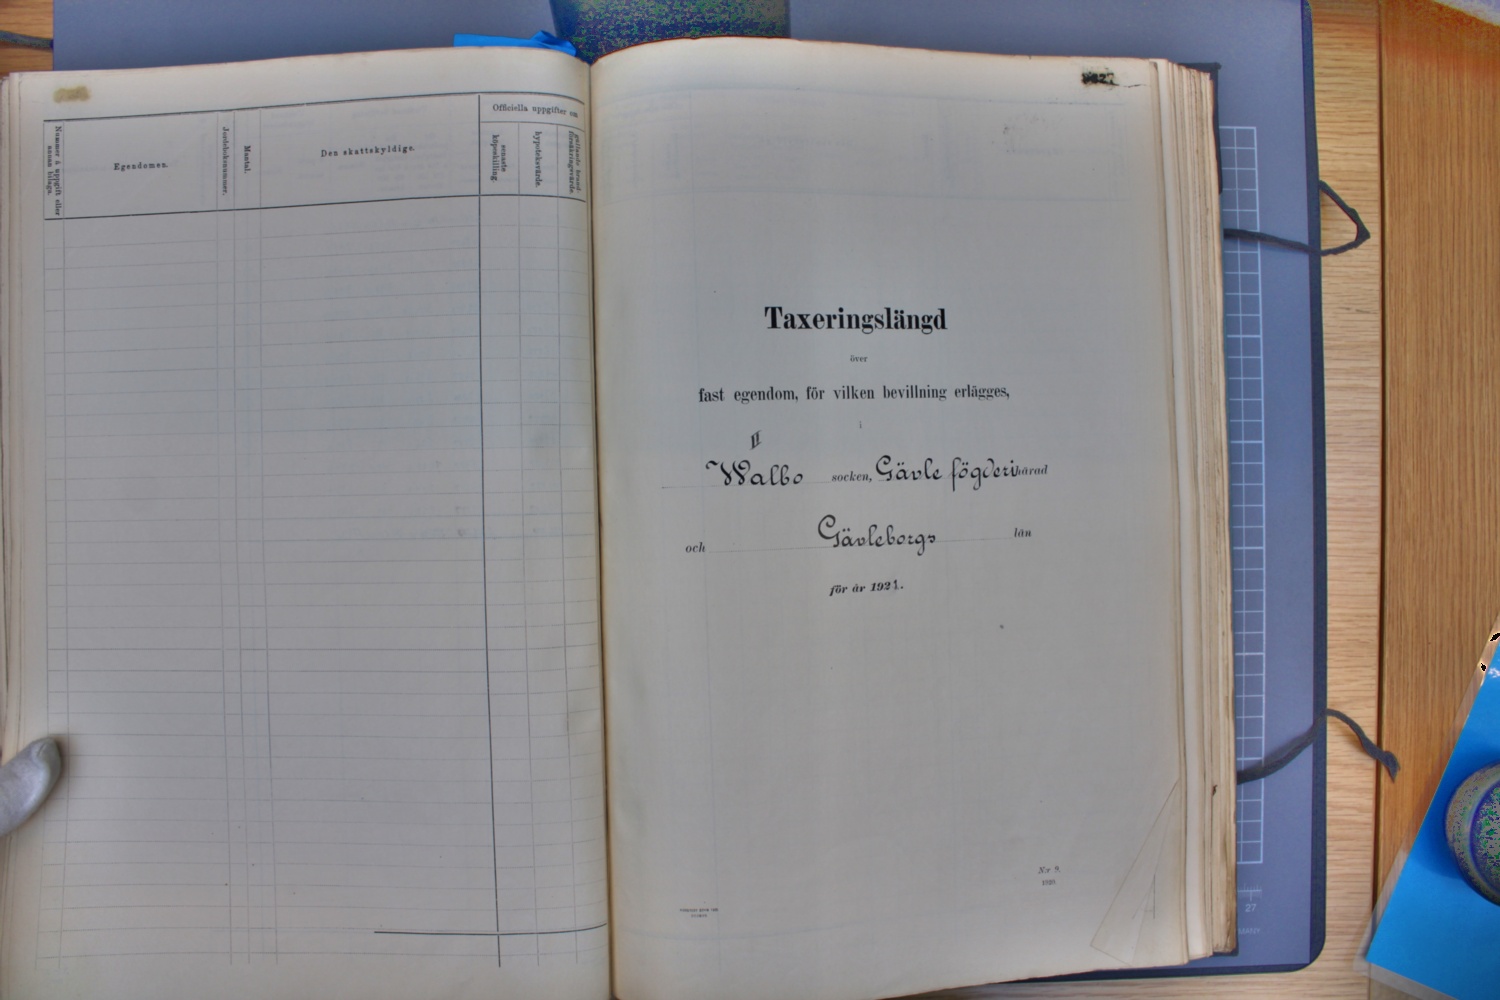 Officiella uppgifter om
Nummer å uppgift eller annan bilaga.
Egendomen.
Jordeboksnummer.
Mantal.
Den skattskyldige.
senaste köpeskilling.
hypoteksvärde.
gällande brand-
försäkringsvärde.
Taxeringslängd
över
fast egendom, för vilken bevillning erlägges,
i
II
Walbo socken, Gävle fögderi härad
och Gävleborgs län
för år 1921.
N:r 9.
27